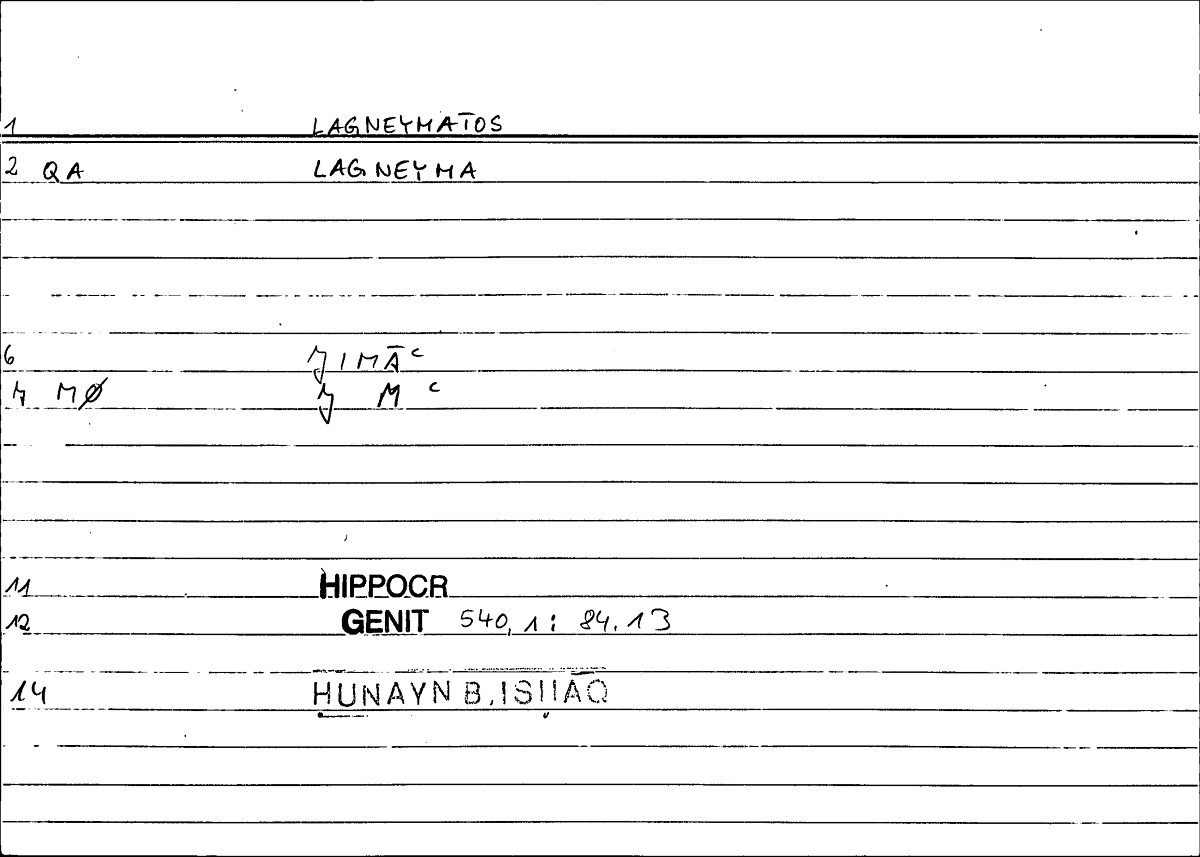 1 LAGNEYMATOS
2 QA LAGNEYMA
6 ӠIMĀᶜ
MØ M ᶜ
11 HIPPOCR
12 GENIT 540,1: 84.13
14 ḤUNAYN B.ISḤĀQ